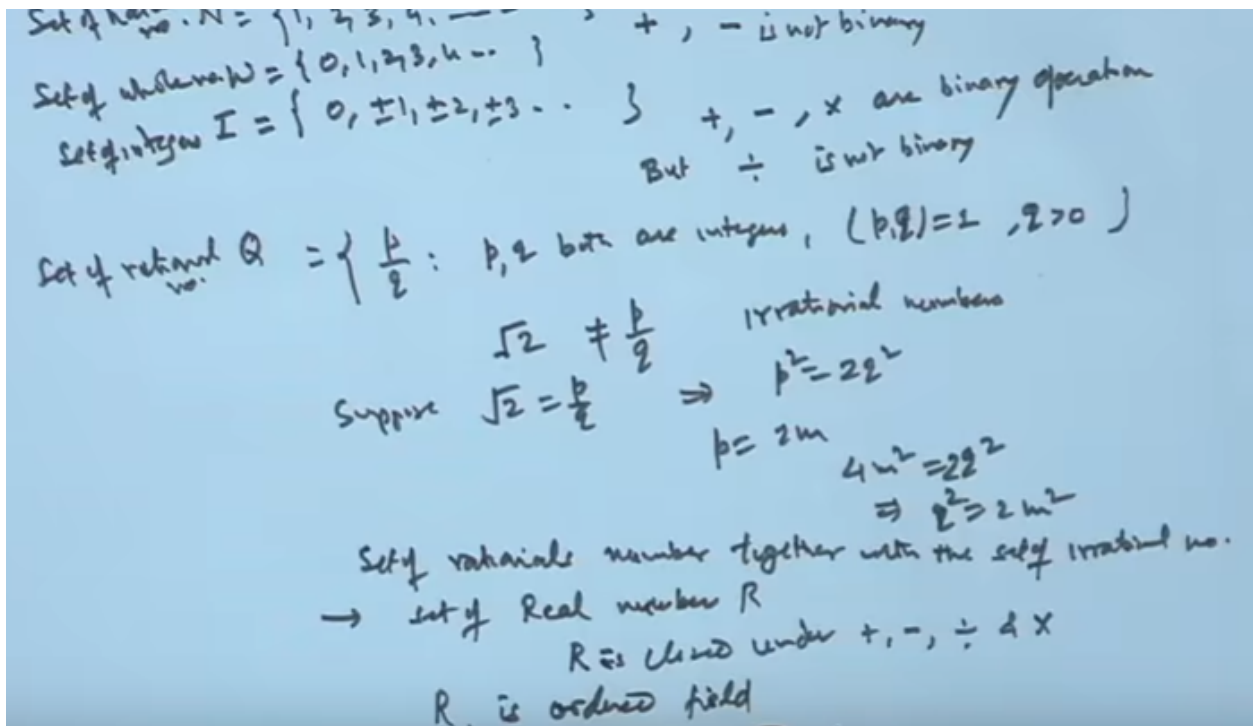 Set of no. N = { 1, 2, 3, 4, — } +, - is not binary
Set of whole no W = { 0, 1, 2, 3, 4 -- }
Set of integers I = { 0, ±1, ±2, ±3 .. } +, -, × are binary operation
But ÷ is not binary
Set of rational no. Q = { p/q : p, q both are integers, (p,q)=1, q>0 }
√2 ≠ p/q irrational numbers
Suppose √2 = p/q ⇒ p² = 2q²
p = 2m
4m² = 2q²
⇒ q² = 2m²
Set of rationals number together with the set of irrational no.
→ set of Real number R
R is closed under +, -, ÷ & ×
R is ordered field